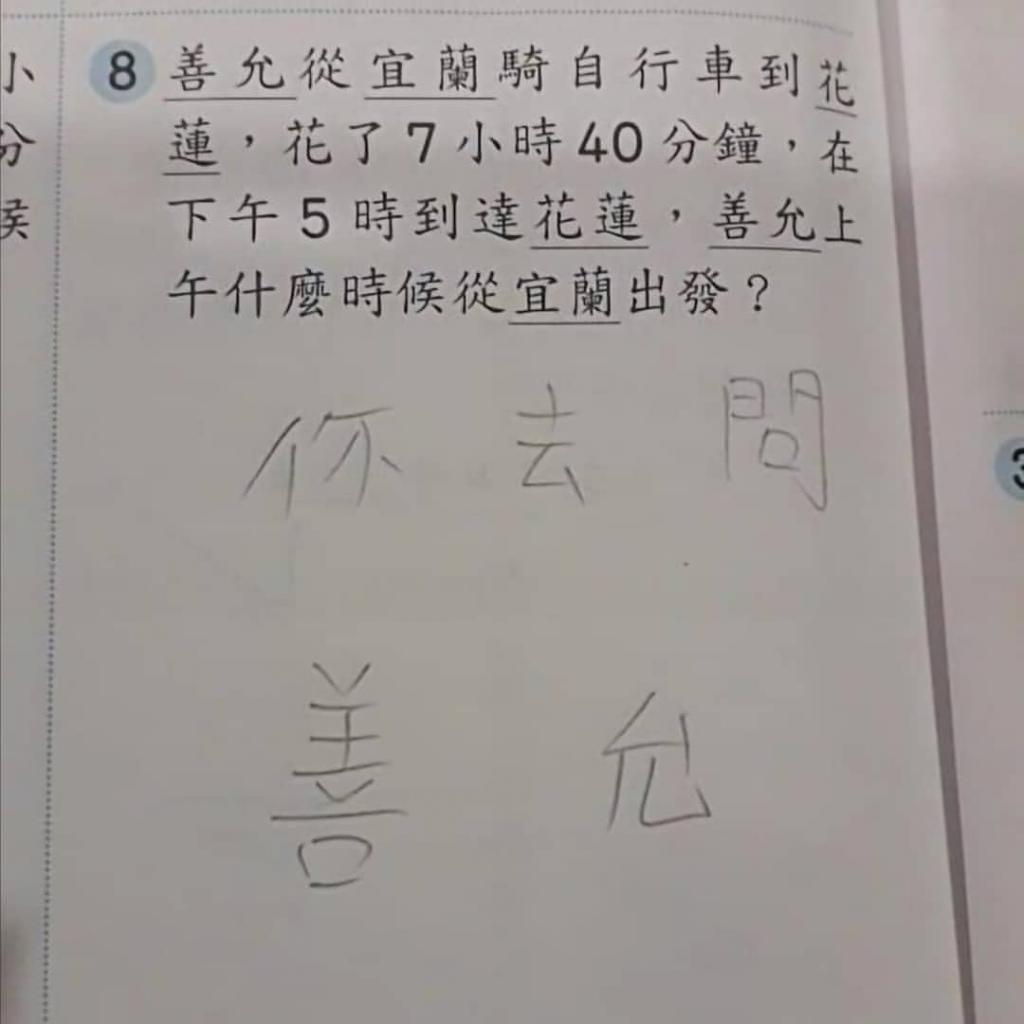 小
分
候
8 善允從宜蘭騎自行車到花
蓮，花了7小時40分鐘，在
下午5時到達花蓮，善允上
午什麼時候從宜蘭出發？
你去問
善允
3